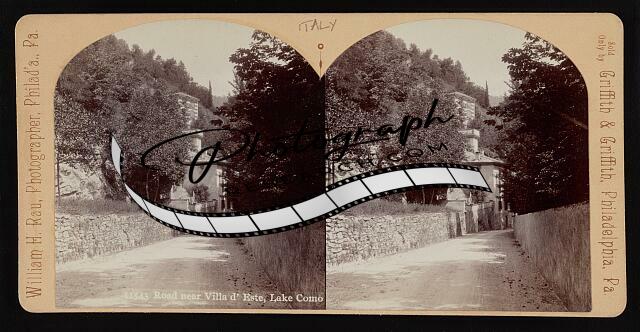 ITALY
William H. Rau, Photographer, Philad'a., Pa.
Sold
Only by
Griffith & Griffith, Philadelphia, Pa
Photograph
.COM
11543 Road near Villa d' Este, Lake Como